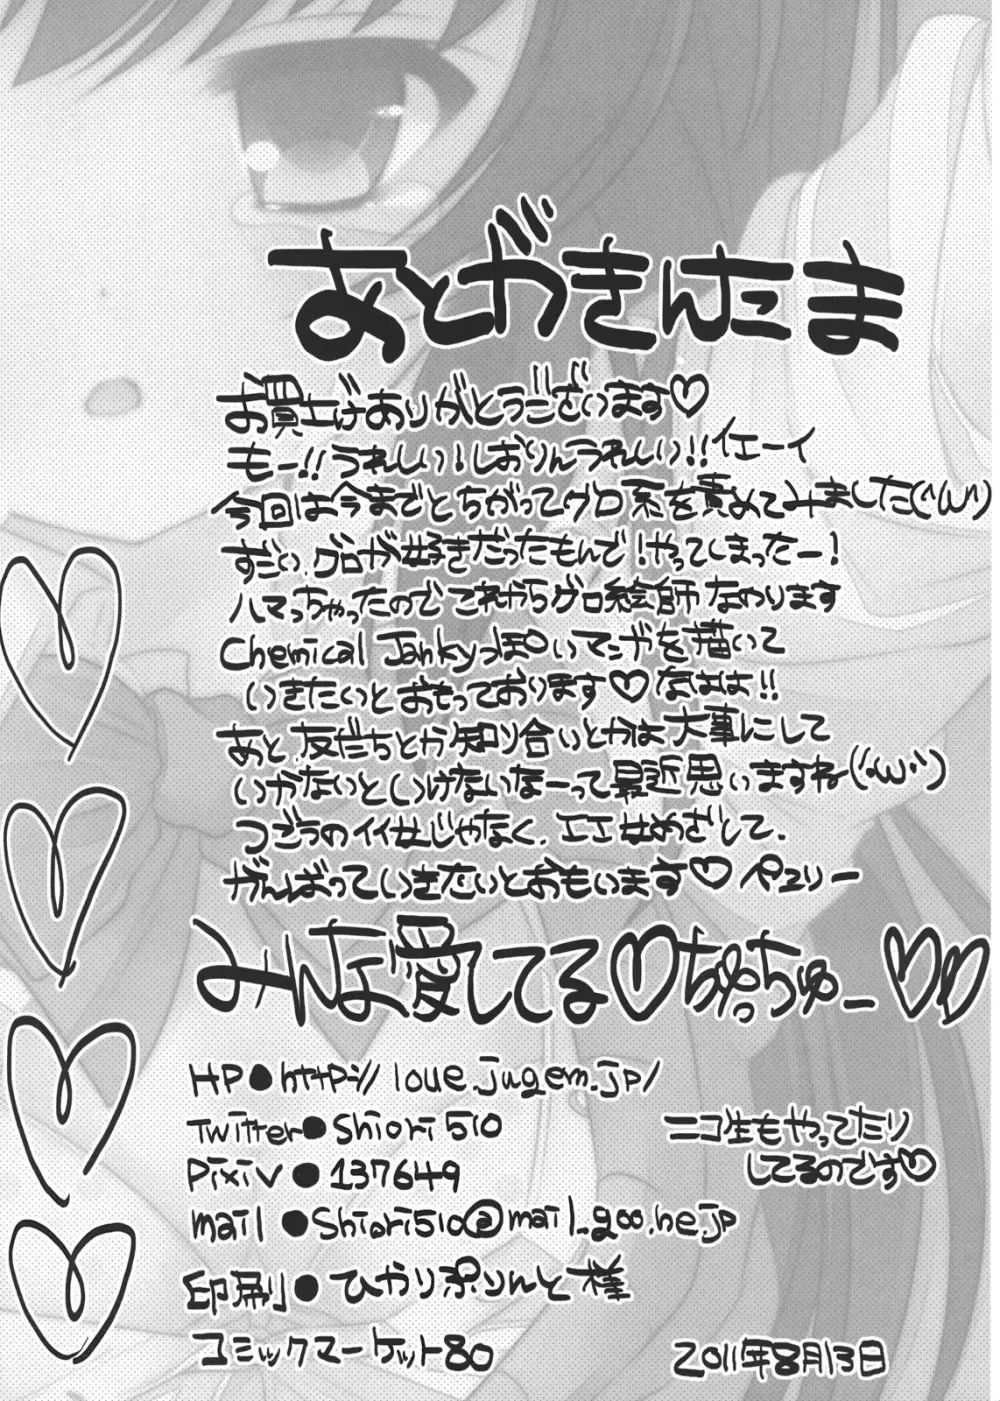 あとがきんたま
お買上げありがとうございます♡
もー!!うれしい!しおりんうれしい!!イエーイ
今回は今までとちがってグロ系を責めてみました(´・ω・`)
すごい、グロが好きだったもんで!やってしまったー!
ハマっちゃったのでこれからグロ絵師なのります
Chemical Jankyっぽいマンガを描いて
いきたいとおもっております♡なはは!!
あと、友だちとか知り合いとかは大事にして
いかないといけないなーって最近思いますね(´・ω・`)
つごうのイイ女じゃなく、エエ女めざして、
がんばっていきたいとおもいます♡ペユリー
みんな愛してる♡ちゅっちゅー♡♡
HP●http://loue.jugem.jp/
Twitter●Shiori510
ニコ生もやってたり
してるのです♡
Pixiv●137649
mail●Shiori510@mail.goo.ne.jp
印刷●ひかりぷりんと様
コミックマーケット80
2011年8月13日